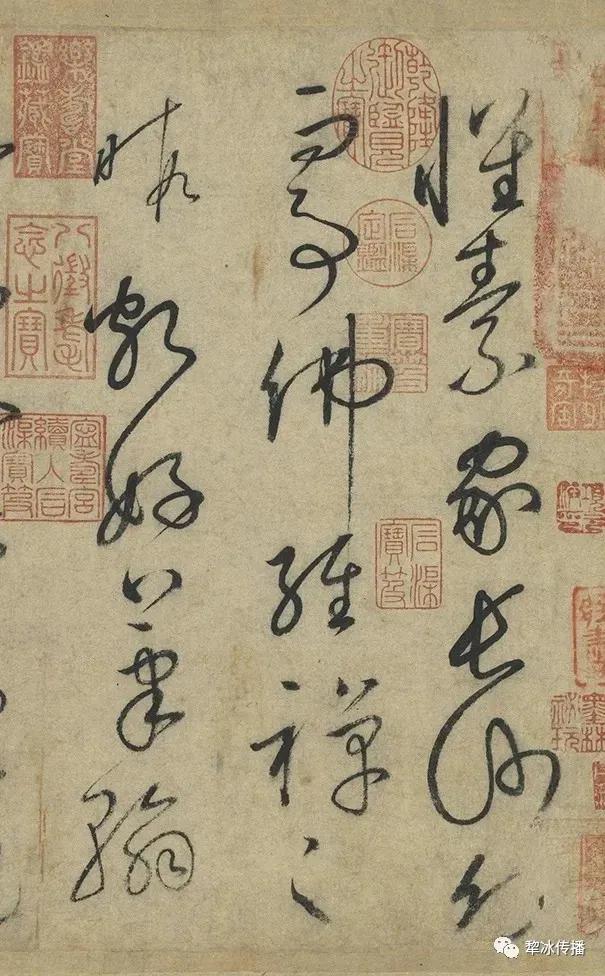 懷素家長沙幼
而事佛經禪之
暇頗好筆翰
乾隆御覽之寶
石渠定鑑
寶笈重編
石渠寶笈
樂壽堂鑑藏寶
八徵耄念之寶
寧壽宮續入石渠寶笈
犁冰传播